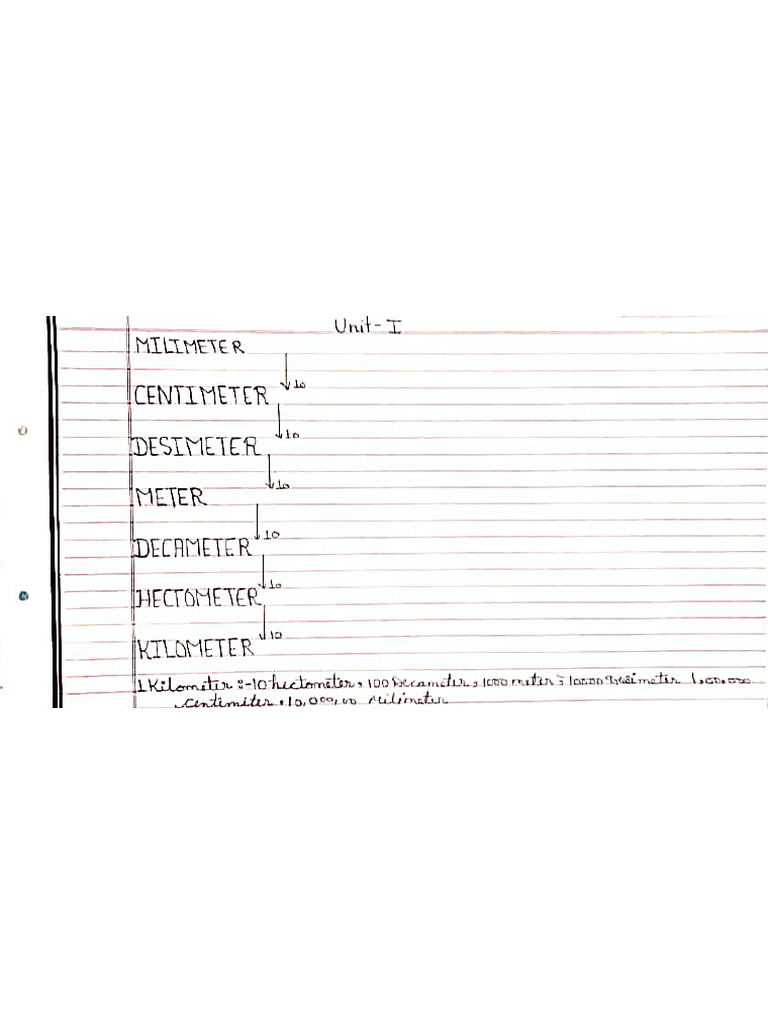 Unit-I
MILIMETER
10
CENTIMETER
10
DESIMETER
10
METER
10
DECAMETER
10
HECTOMETER
10
KILOMETER
1 Kilometer :- 10 hectometer, 100 Decameter, 1000 meter = 10000 Desimeter 1,00,000
Centimeter, 10,000,00 Milimeter